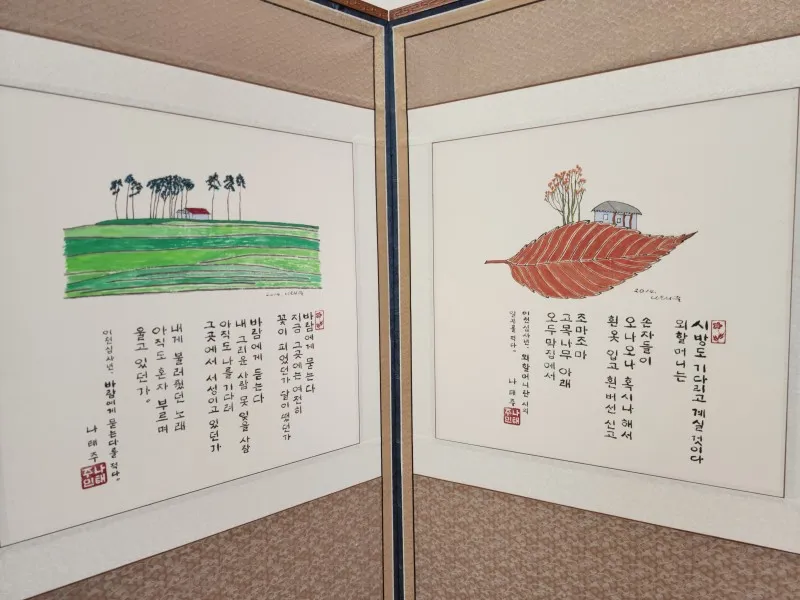 2014. 나태주
바람에게 묻는다
지금 그곳에는 여전히
꽃이 피었던가 달이 떴던가
바람에게 듣는다
내 그리운 사람 못 잊을 사람
아직도 나를 기다려
그곳에서 서성이고 있던가
내게 불러줬던 노래
아직도 혼자 부르며
울고 있던가.
이천십사년, 바람에게 묻는다를 적다.
나태주
나태
주인
2014.
나태주
시방도 기다리고 계실 것이다
외할머니는
손자들이
오나오나 혹시나 해서
흰옷 입고 흰버선 신고
조마조마
고목나무 아래
오두막집에서
이천십사년, 외할머니란 시의
적다.
나태주
나태
주인